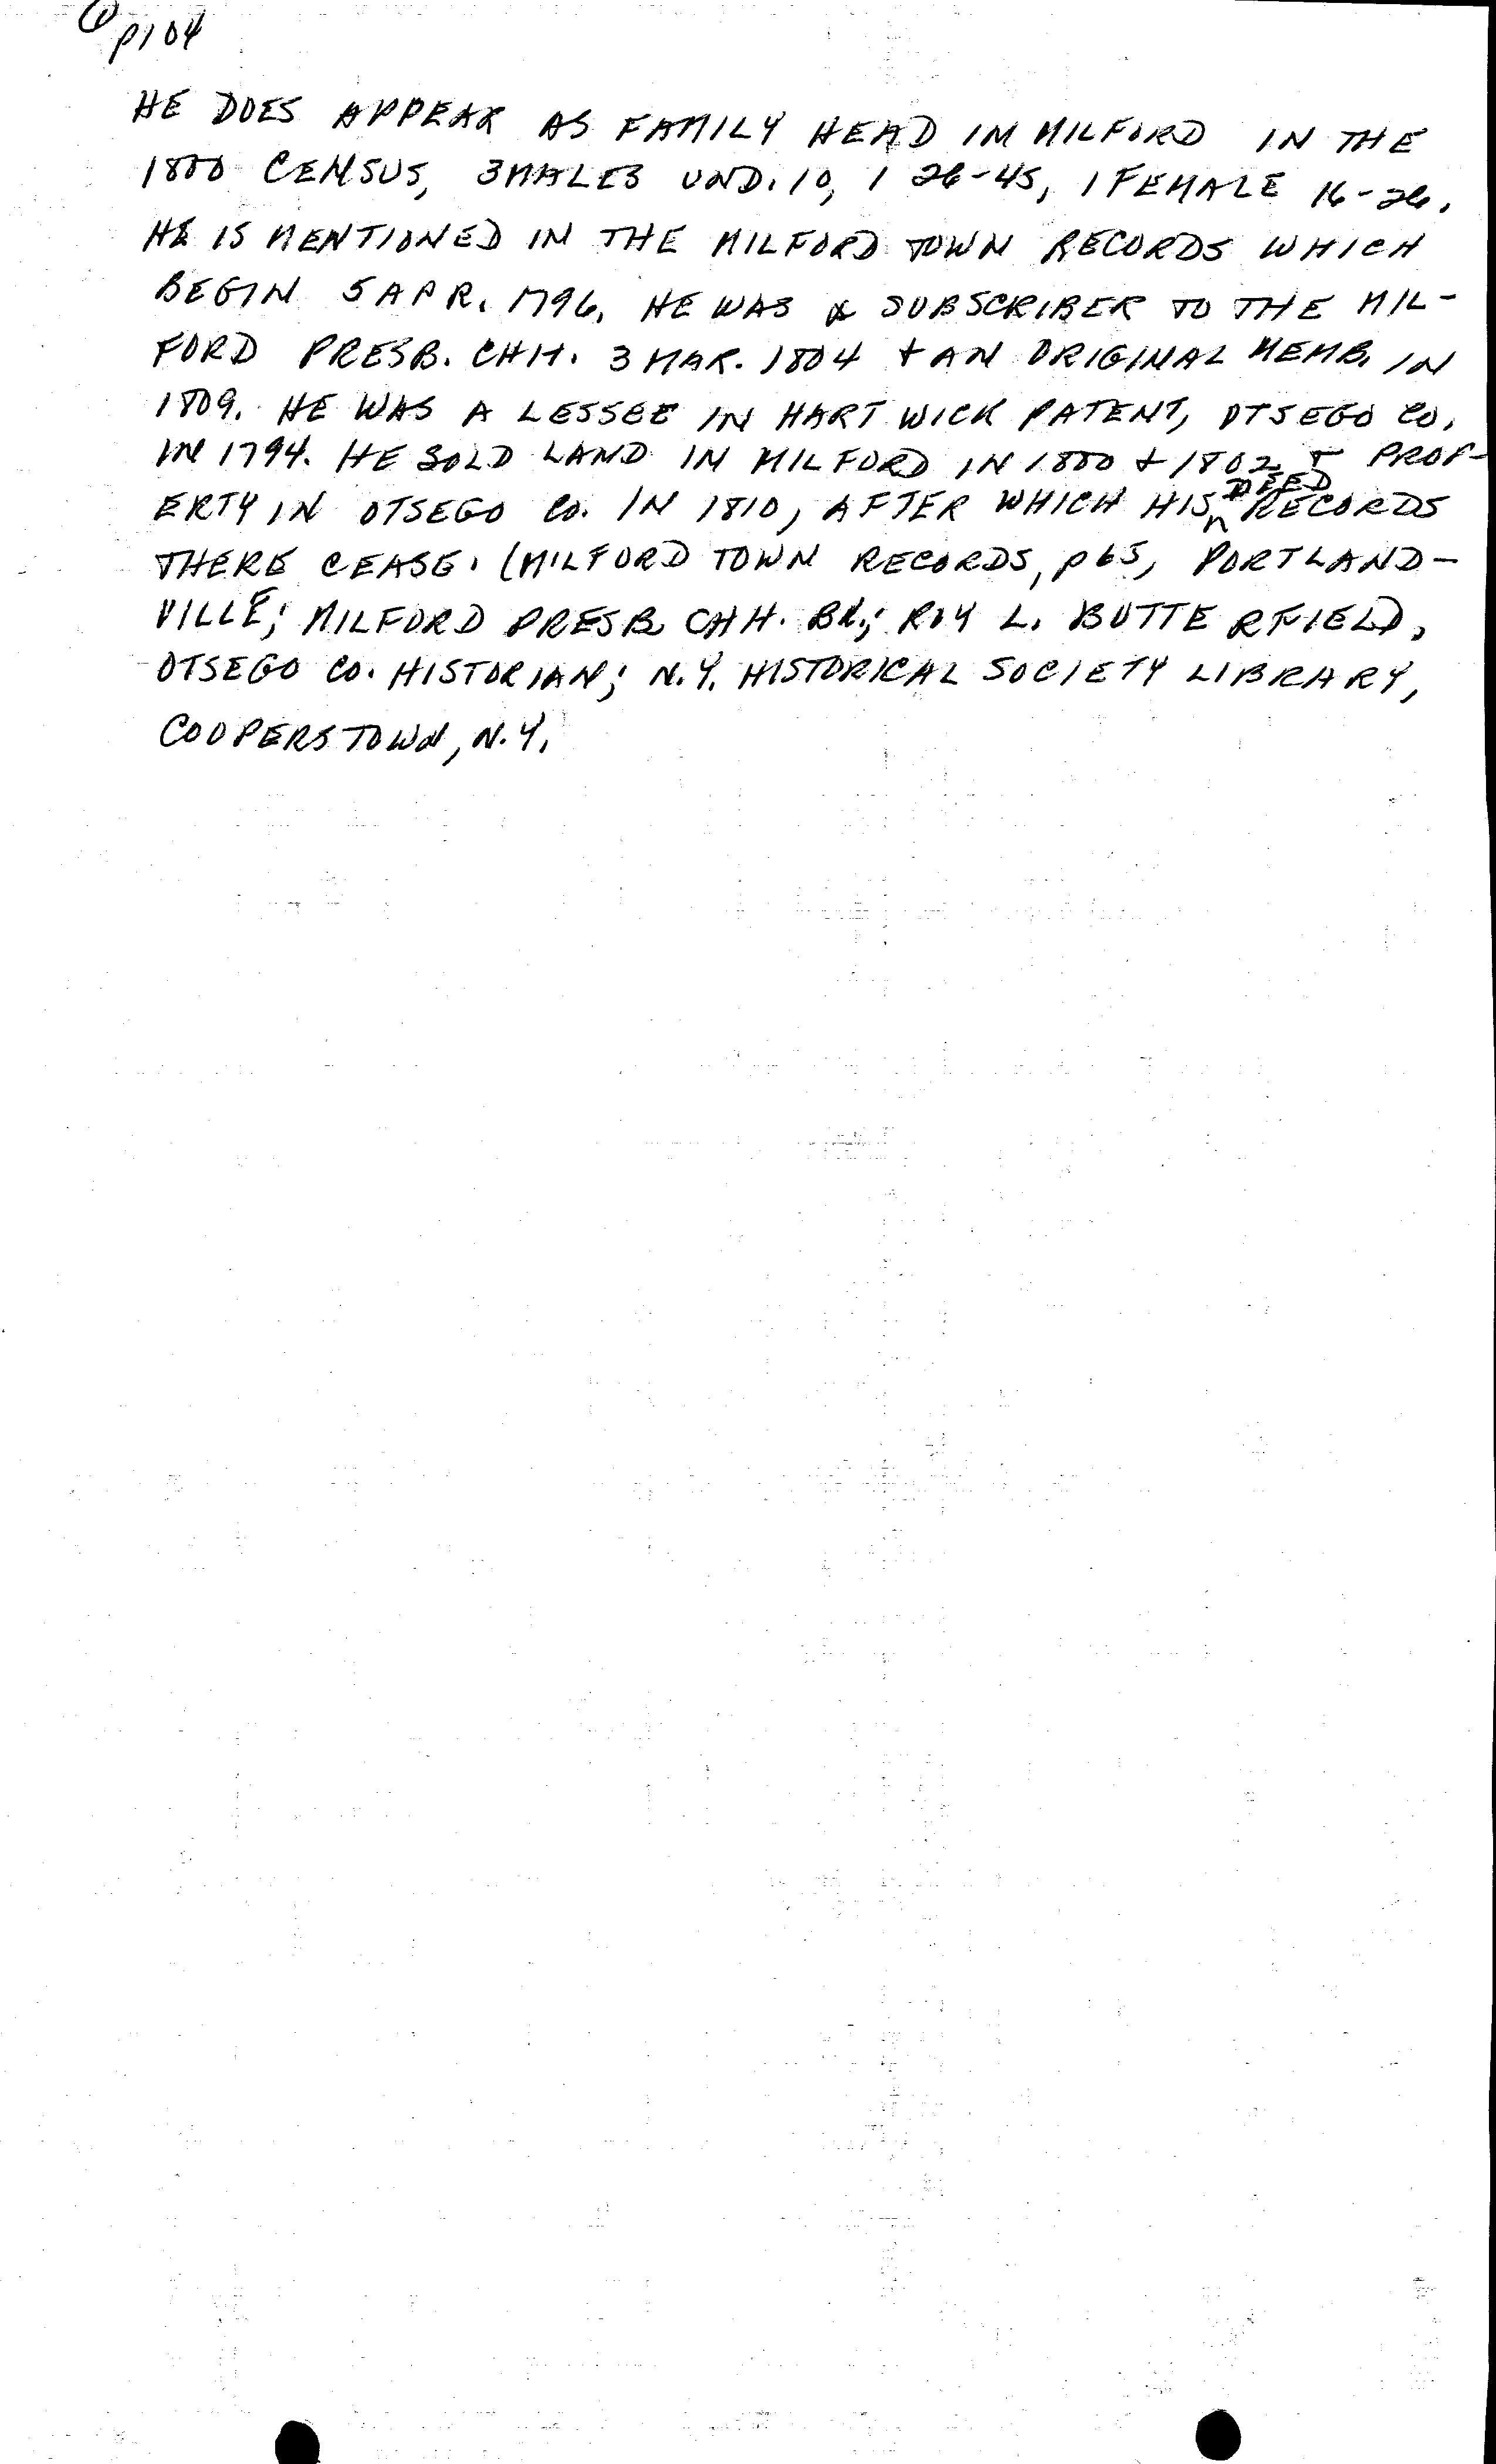 p104
HE DOES APPEAR AS FAMILY HEAD IN MILFORD IN THE
1800 CENSUS, 3 MALES UND. 10, 1 26-45, 1 FEMALE 16-26.
HE IS MENTIONED IN THE MILFORD TOWN RECORDS WHICH
BEGIN 5 APR. 1796. HE WAS A SUBSCRIBER TO THE MIL-
FORD PRESB. CHH. 3 MAR. 1804 + AN ORIGINAL MEMB. IN
1809. HE WAS A LESSEE IN HARTWICK PATENT, OTSEGO CO.
IN 1794. HE SOLD LAND IN MILFORD IN 1800 + 1802 + PROP-
ERTY IN OTSEGO CO. IN 1810, AFTER WHICH HIS DEED RECORDS
THERE CEASE. (MILFORD TOWN RECORDS, p65, PORTLAND-
VILLE; MILFORD PRESB. CHH. BK.; ROY L. BUTTERFIELD,
OTSEGO CO. HISTORIAN; N.Y. HISTORICAL SOCIETY LIBRARY,
COOPERSTOWN, N.Y.